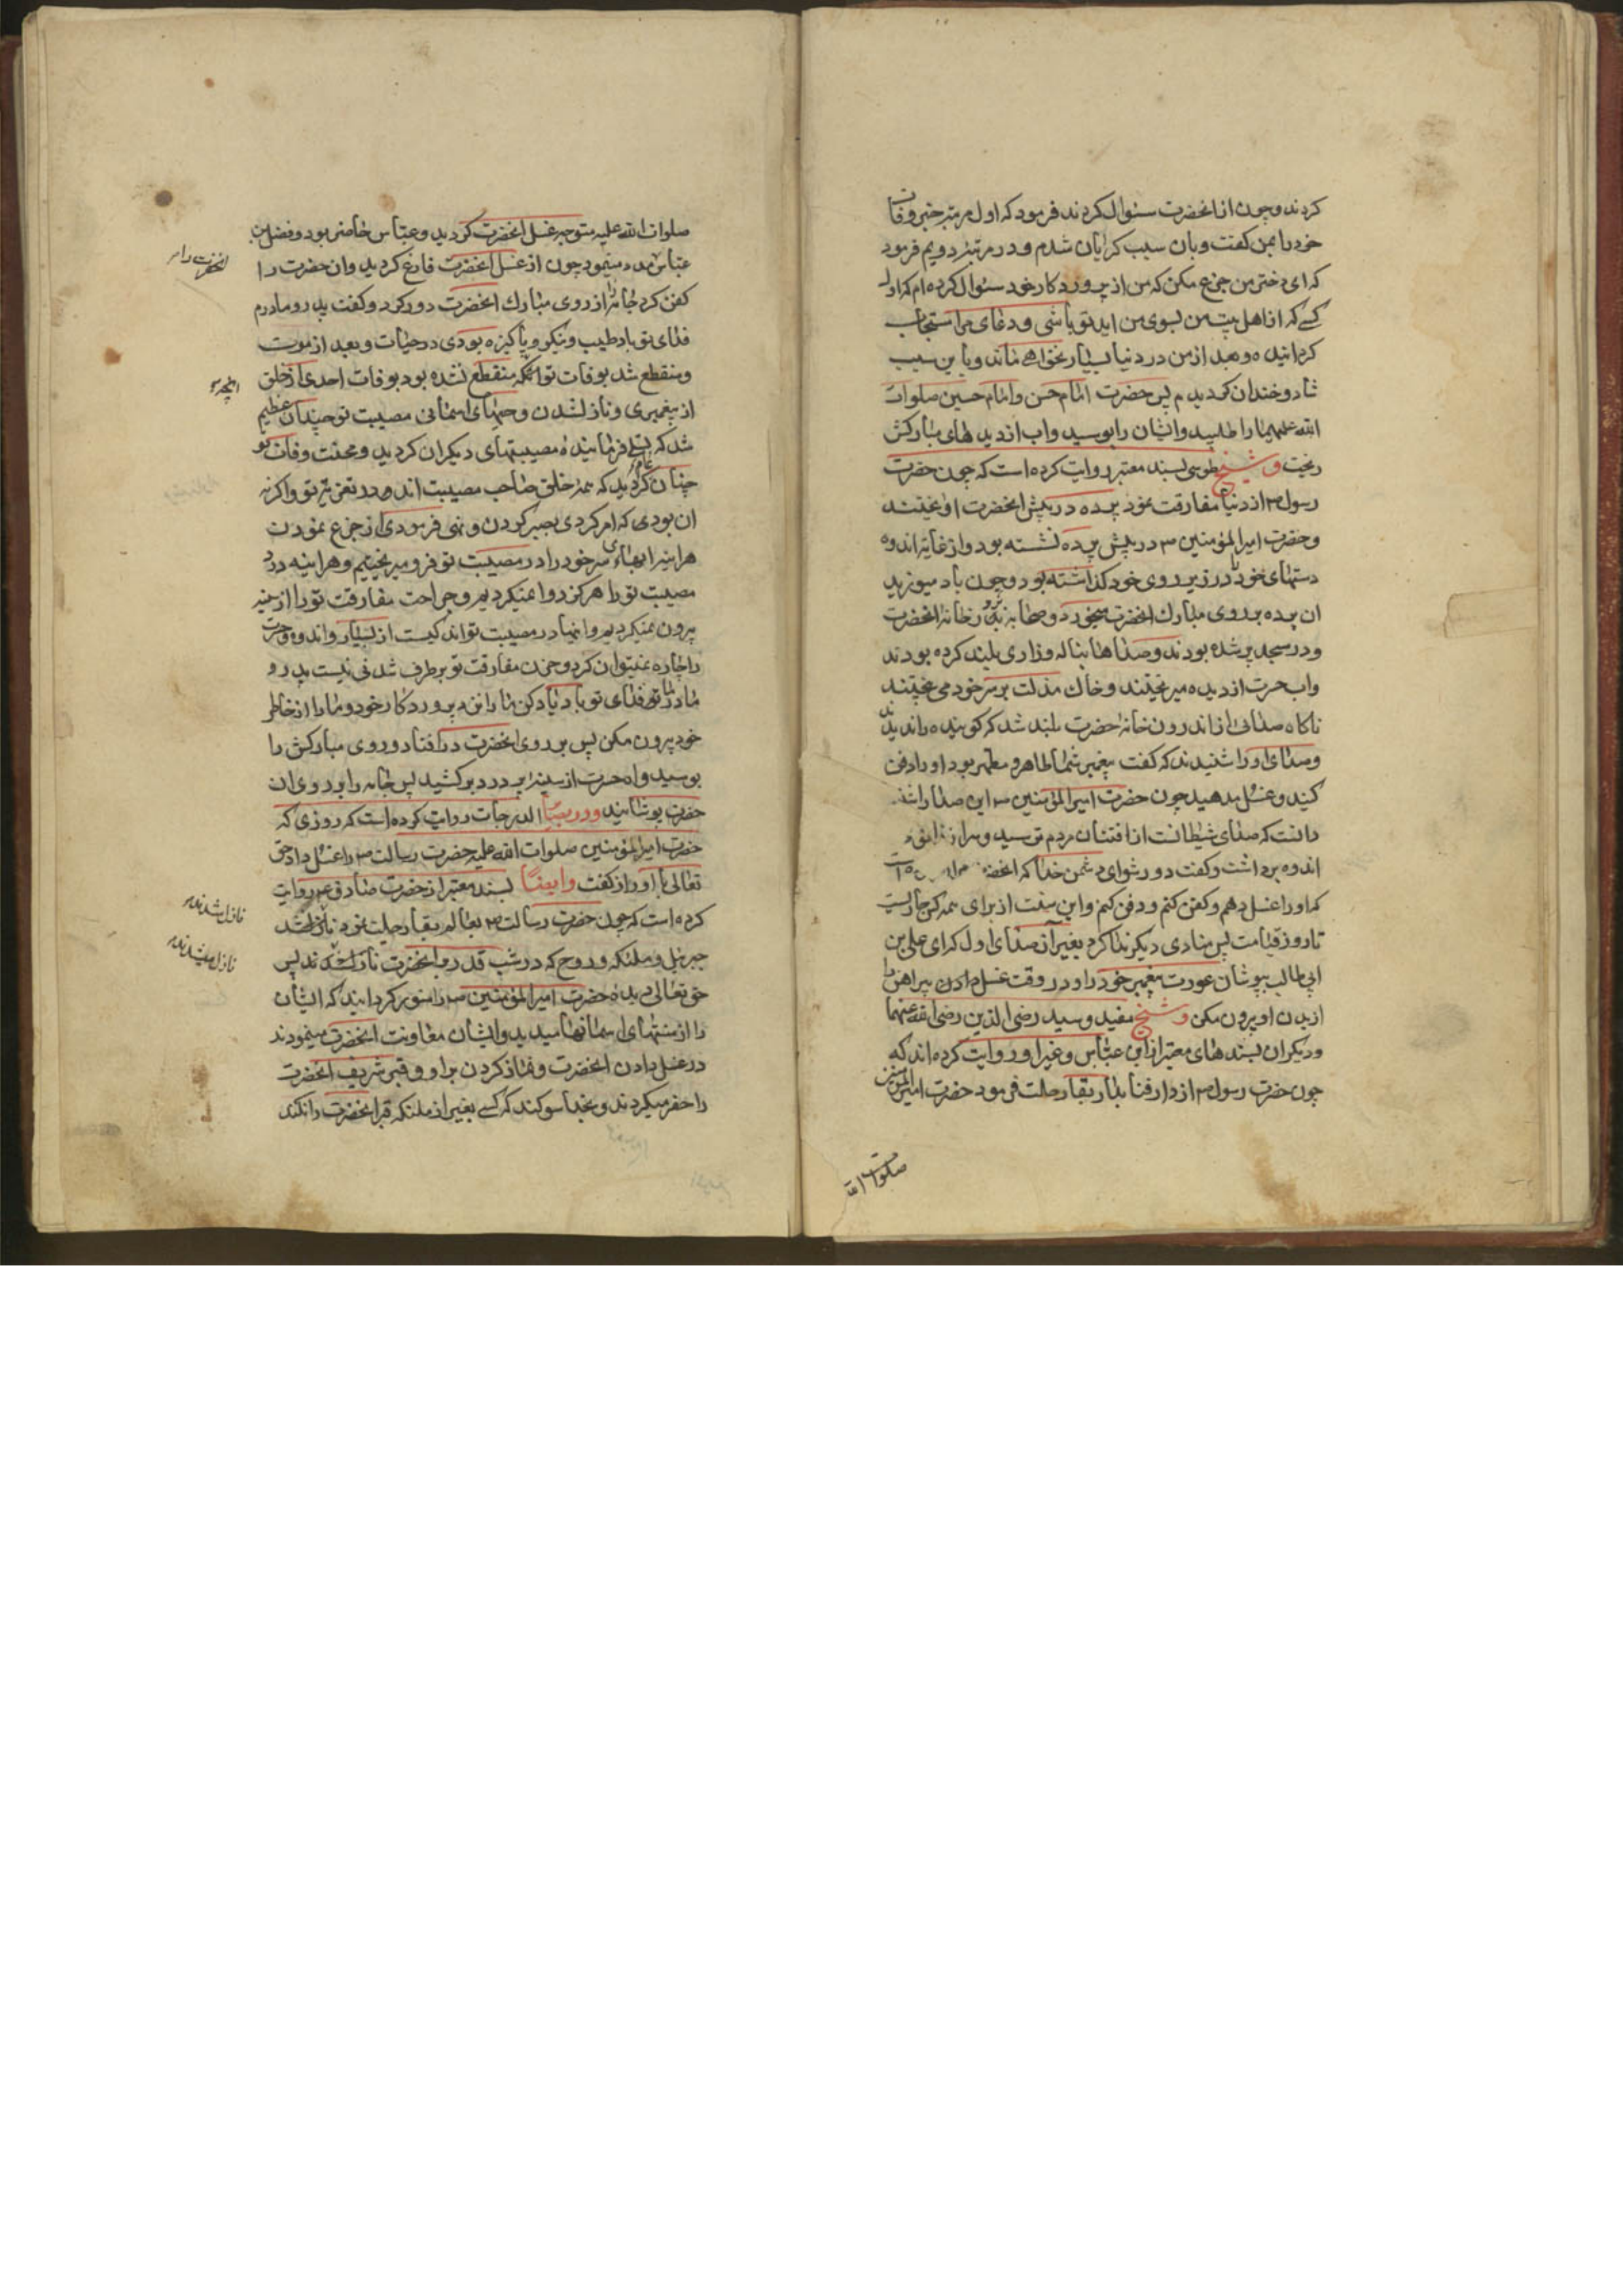 کردند و چون از انحضرت سئوال کردند فرمود که اول مرتبه خبر وفات
خود را بمن کفت و بان سبب کریان شدم و در مرتبه دویم فرمود
که ای دختر من جزع مکن که من از پروردکار خود سئوال کرده ام که اول
کسے که از اهل بیت من بسوی من اید تو باشی و دعای مرا مستجاب
کردانیده و بعد از من در دنیا بسیار نخواهے ماند و باین سبب
شاد و خندان کردیدم پس حضرت امام حسن و امام حسین صلوات
الله علیهما را طلبید و ایشان را بوسید و اب از دیده های مبارکش
ریخت و شیخ طوسی بسند معتبر روایت کرده است که چون حضرت
رسول ص از دنیا مفارقت نمود پرده در پیش انحضرت اویختند
و حضرت امیر المؤمنین ع در پیش پرده نشسته بود و از غایة اندوه
دستهای خود را در زیر روی خود کذاشته بود و چون باد میوزید
ان پرده بر روی مبارک انحضرت میخورد و صحابه بر در خانه انحضرت
و در مسجد پر شده بودند و صداها بناله و زاری بلند کرده بودند
و اب حسرت از دیده میریختند و خاک مذلت بر سر خود می پختند
ناکاه صدائی از اندرون خانه حضرت بلند شد که کوینده را ندیدند
و صدای او را شنیدند که کفت پیغمبر شما طاهر و مطهر بود او را دفن
کنید و غسل مدهید چون حضرت امیر المؤمنین ع این صدا را شنید
دانست که صدای شیطانست از افتتان مردم ترسید و سر از زانوی
اندوه برداشت و کفت دور شو ای دشمن خدا که انحضرت
که او را غسل دهم و کفن کنم و دفن کنم و این سنت از برای همه کس جاریست
تا روز قیامت پس منادی دیکر ندا کرد بغیر از صدای اول که ای علی بن
ابی طالب بپوشان عورت پیغمبر خود را و در وقت غسل دادن پیراهن را
از بدن او بیرون مکن و شیخ مفید و سید رضی الدین رضی الله عنهما
و دیکران بسندهای معتبر از ابن عباس و غیر او روایت کرده اند که
چون حضرت رسول ص از دار فنا بدار بقا رحلت فرمود حضرت امیر المؤمنین
صلوات الله
صلوات الله علیه متوجه غسل انحضرت کردید و عباس حاضر بود و فضل بن
عباس مدد مینمود چون از غسل انحضرت فارغ کردید و ان حضرت را
کفن کرد جامه را از روی مبارک انحضرت دور کرد و کفت پدر و مادرم
فدای تو باد طیب و نیکو و پاکیزه بودی در حیات و بعد از موت
و منقطع شد بوفات تو انچه منقطع نشده بود بوفات احدی از خلق
از پیغمبری و نازل شدن وحیهای اسمانی مصیبت تو چندان عظیم
شد که تسلے فرماینده مصیبتهای دیکران کردید و محنت وفات تو
چنان عام کردید که همه خلق صاحب مصیبت اند در تعزیه تو و اکر نه
ان بودی که امر کردی بصبر کردن و نهی فرمودی از جزع نمودن
هراینه ابهای سر خود را در مصیبت تو فرو میریختیم و هراینه درد
مصیبت ترا هرکز دوا نمیکردیم و جراحت مفارقت تو را از سینه
بیرون نمیکردیم و اینها در مصیبت تو اندکیست از بسیار و اندوه و حسرت
را چاره نمیتوان کرد و حزن مفارقت تو برطرف شدنی نیست پدر و
مادر ما فدای تو باد یاد کن ما را نزد پروردکار خود و ما را از خاطر
خود بیرون مکن پس بر روی انحضرت در افتاد و روی مبارکش را
بوسید و اه حسرت از سینه پر درد بر کشید پس جامه را بر روی ان
حضرت پوشانید و در بصائر الدرجات روایت کرده است که روزی که
حضرت امیر المؤمنین صلوات الله علیه حضرت رسالت ص را غسل داد حق
تعالی با او راز کفت و ایضا بسند معتبر از حضرت صادق ع روایت
کرده است که چون حضرت رسالت ص بعالم بقا رحلت نمود نازل شد
جبرئیل و ملئکه و روح که در شب قدر بر انحضرت نازل شدند پس
حق تعالی دیده حضرت امیر المؤمنین ع را منور کردانید که ایشان
را از منتهای اسمانها میدید و ایشان معاونت انحضرت مینمودند
در غسل دادن انحضرت و نماز کردن بر او و قبر شریف انحضرت
را حفر میکردند و بخدا سوکند که کسے بغیر از ملئکه قبر انحضرت را نکند
انحضرت را
انچه
نازل شدند
نازل میشدند